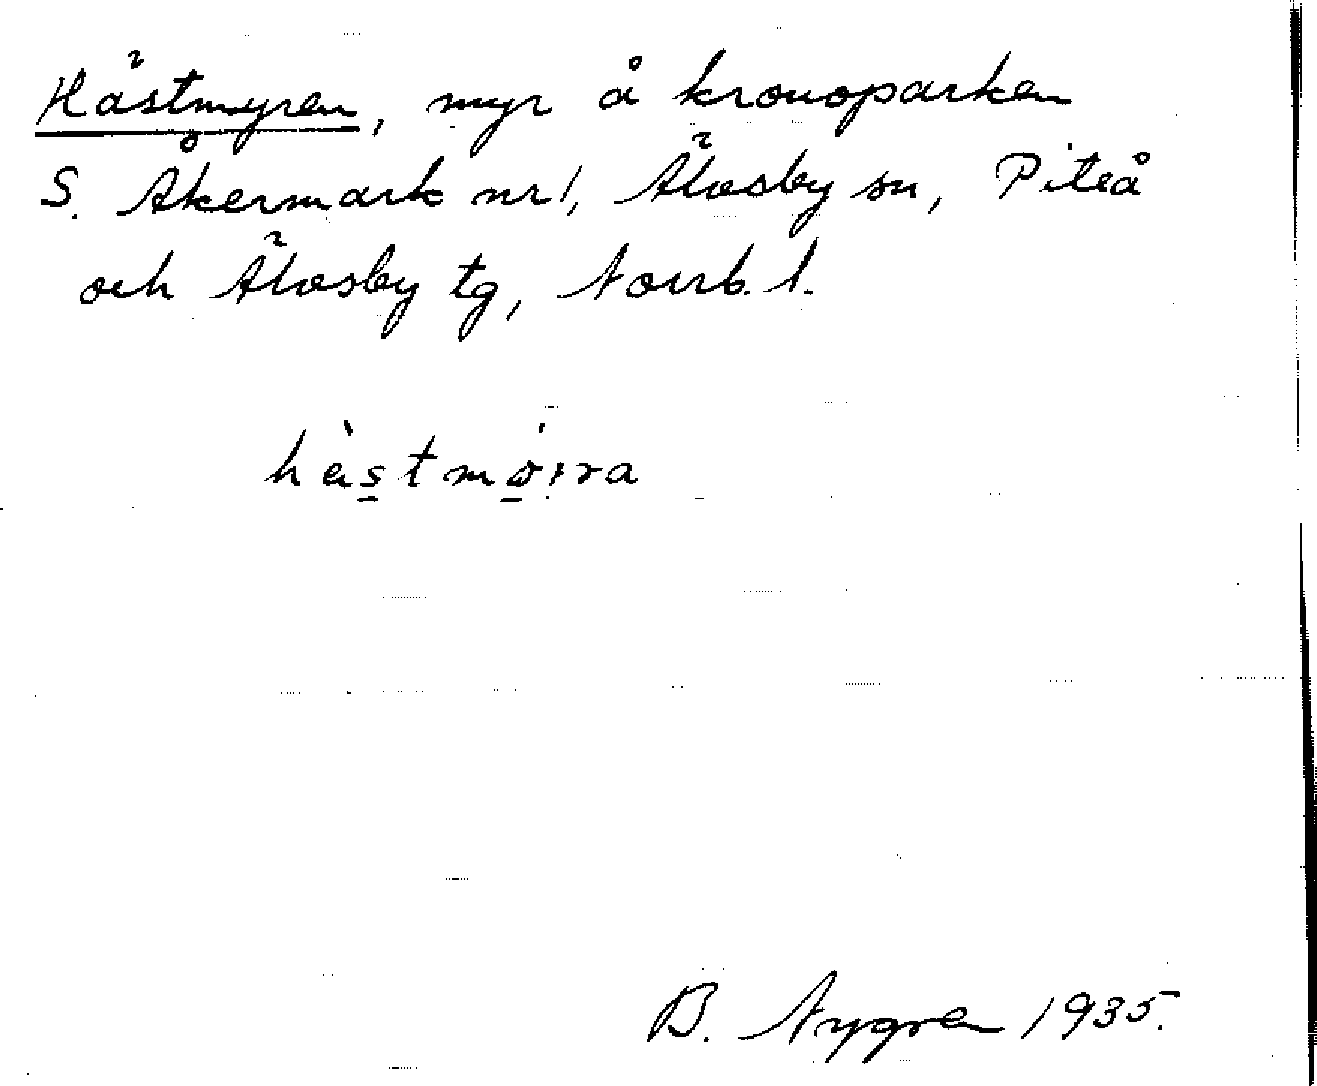 Hästmyren, myr å kronoparken
S. Åkermark nr 1, Älvsby sn, Piteå
och Älvsby tg, Norrb. l.
hàs̲tmǿ̲ɪra
B. Nygren 1935.